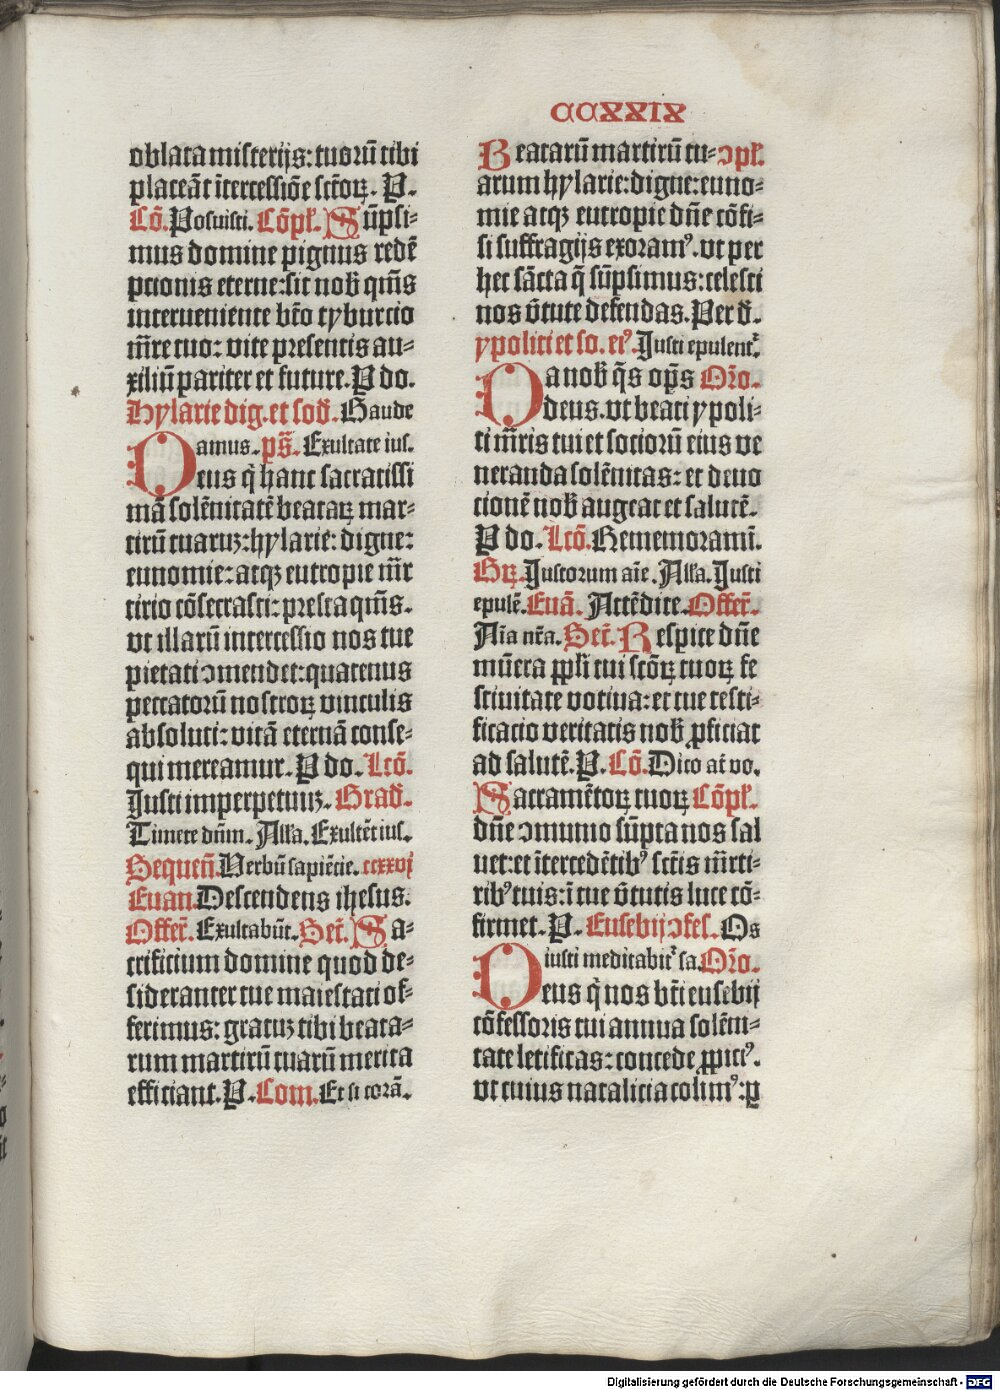 CCXXIX
oblata misterijs: tuorū tibi
placeāt ītercessiōe sctōꝝ. P.
Cō. Posuisti. Cōpł. Sūpsi-
mus domine pignus redē
ptionis eterne: sit nob̄ qm̄s
interueniente bt̄o tyburcio
m̄re tuo: vite presentis au-
xiliū pariter et future. P do.
Hylarie dig. et sod̄. Gaude
amus. pś. Exultate ius.
Deus q̄ hanc sacratissi
mā solēnitatē beataꝝ mar-
tirū tuaruꝫ: hylarie: digne:
eunomie: atqꝫ eutropie m̄r
tirio cōsecrasti: presta qm̄s.
vt illarū intercessio nos tue
pietati ↄmendet: quatenus
peccatorū nostroꝝ vinculis
absoluti: vitā eternā conse-
qui mereamur. P do. Lcō.
Justi imperpetuuꝫ. Grad̄.
Timete dn̄m. Alła. Exultēt ius.
Sequen̄. Verbū sapiēcie. ccxxvj
Euan. Descendens ihesus.
Offer̄. Exultabūt. Secr̄. Sa-
crificium domine quod de-
sideranter tue maiestati of-
ferimus: gratuꝫ tibi beata-
rum martirū tuarū merita
efficiant. P. Com. Et si corā.
Beatarū martirū tu- ↄpł.
arum hylarie: digne: euno-
mie atqꝫ eutropie dn̄e cōfi-
si suffragijs exoramꝰ. vt per
hec sācta q̄ sūpsimus: celesti
nos v̄tute defendas. Per d̄.
ypoliti et so. eiꝰ. Justi epulent̄.
Da nob̄ q̄s op̄s Orō.
deus. vt beati ypoli-
ti m̄ris tui et sociorū eius ve
neranda solēnitas: et deuo
tionē nob̄ augeat et salutē.
P do. Lcō. Rememoramī.
Gꝝ. Justorum aīe. Alła. Justi
epulē. Euā. Attēdite. Offer̄.
Aīa nr̄a. Secr̄. Respice dn̄e
mūera ppłi tui sctōꝝ tuoꝝ fe
stiuitate votiua: et tue testi-
ficacio veritatis nob̄ ꝓficiat
ad salutē. P. Cō. Dico at̄ vo.
Sacramētoꝝ tuoꝝ Cōpł.
dn̄e ↄmunio sūpta nos sal
uet: et ītercedētibꝰ sctīs m̄rti-
ribꝰ tuis: ī tue v̄tutis luce cō-
firmet. P. Eusebij ↄfes. Os
iusti meditabit̄ sa. Orō.
Deus q̄ nos bt̄i eusebij
cōfessoris tui annua solēni-
tate letificas: concede ꝓpiciꝰ.
vt cuius natalicia colimꝰ: ꝑ
Digitalisierung gefördert durch die Deutsche Forschungsgemeinschaft - DFG